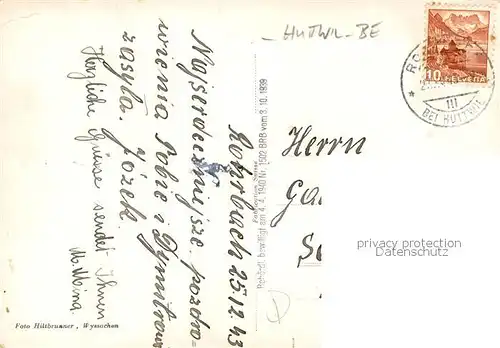 -HUTWIL-BE
HELVETIA
10
III
BEI HUTTWIL
Rohrbach 25.12.43
Najserdeczniejsze pozdro-
wienia Tobie i
zasyła. Józek.
Herzliche Grüsse sendet Ihnen
M. Mina.
Herrn
Behördl. bewilligt am 4. 4. 1940 Nr. 1502 BRB vom 3. 10. 1939
Foto Hiltbrunner, Wyssachen
privacy protection
Datenschutz